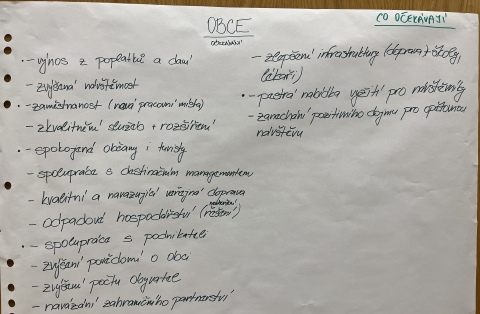 OBCE
OČEKÁVÁNÍ
CO OČEKÁVAJÍ
- výnos z poplatků a daní
- zvýšená návštěvnost
- zaměstnanost (nová pracovní místa)
- zkvalitnění služeb + rozšíření
- spokojené občany i turisty
- spolupráce s destinačním managementem
- kvalitní a navazující veřejná doprava
- odpadové hospodářství (řešení)
- spolupráce s podnikateli
- zvýšení povědomí o obci
- zvýšení počtu obyvatel
- navázání zahraničního partnerství
- zlepšení infrastruktury (doprava, školy,
lékaři)
- pestrá nabídka vyžití pro návštěvníky
- zanechání pozitivního dojmu pro opětovnou
návštěvu